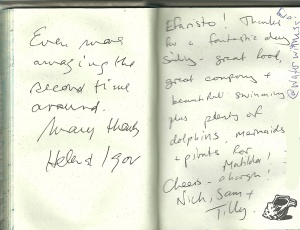 Even more
amazing the
second time
around.
Many thanks
Helen & Igor
Efaristo! Thanks
for a fantastic day
sailing - great food,
great company +
beautiful swimming
plus plenty of
dolphins mermaids
+ pirates for
Matilda!
Cheers -
Nick, Sam +
Tilly.